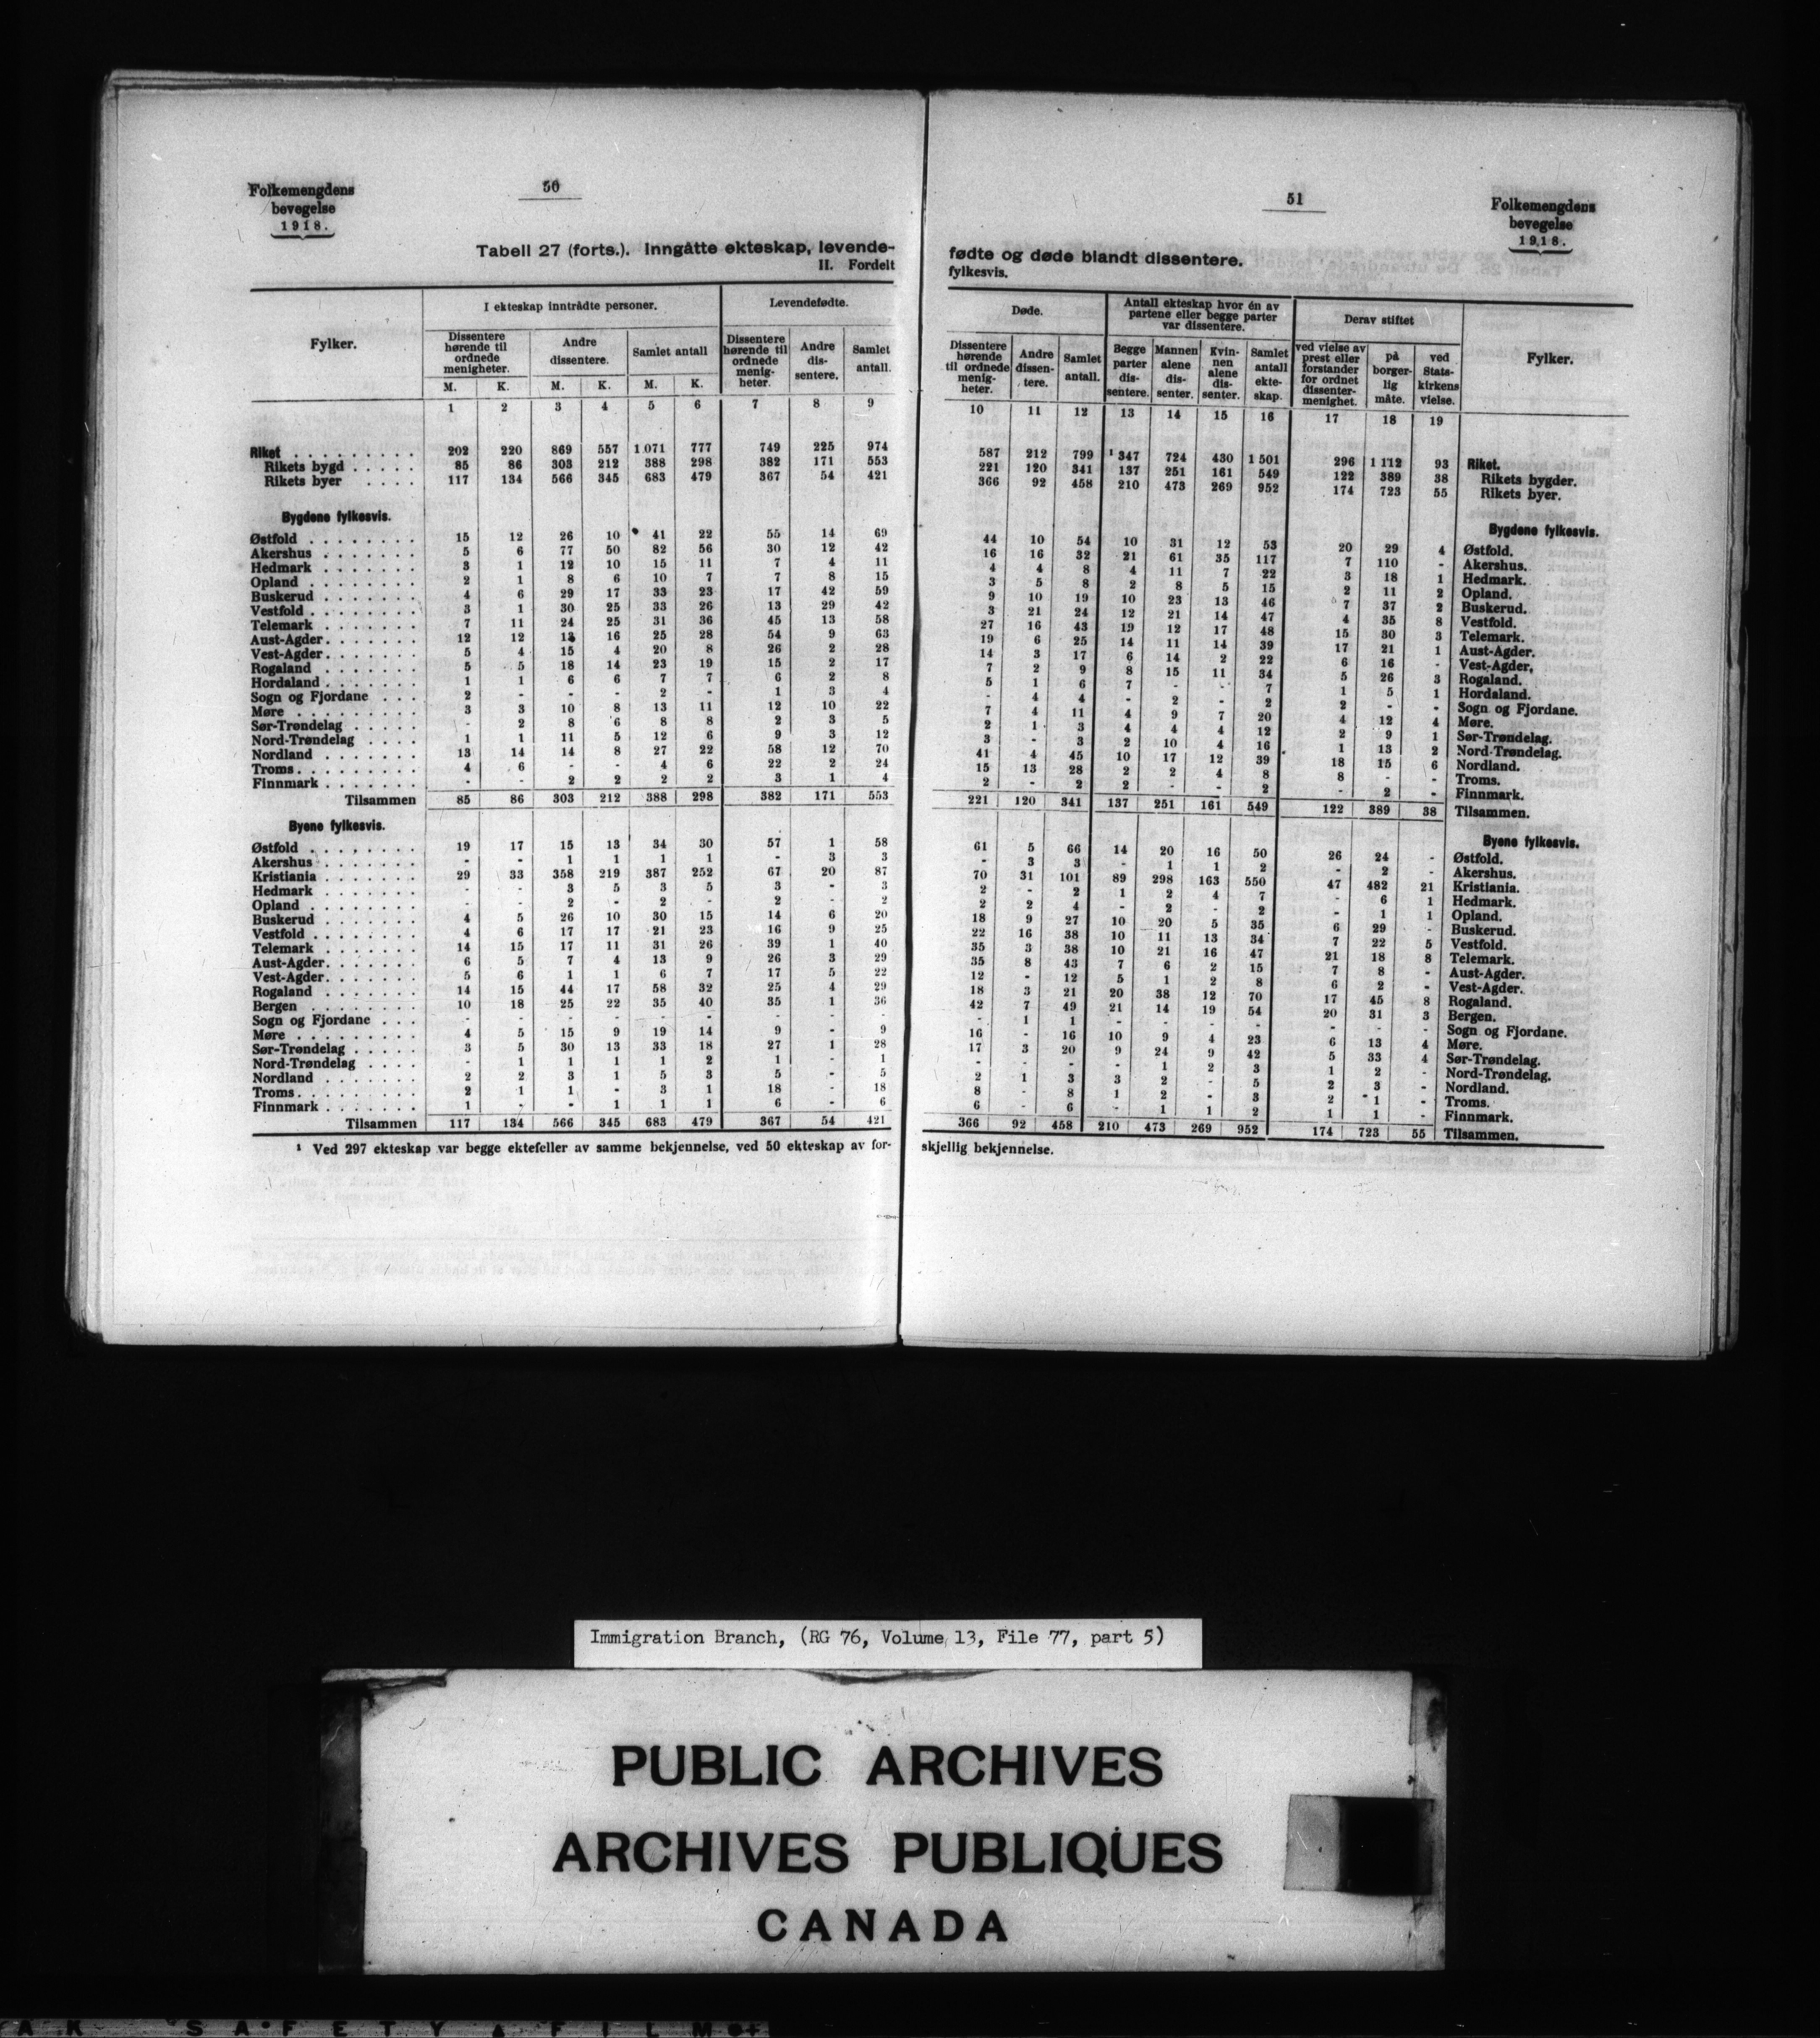 Folkemengdens
bevegelse
1918.
50
Tabell 27 (forts.). Inngåtte ekteskap, levende-
II. Fordelt
Fylker.
I ekteskap inntrådte personer.
Levendefødte.
Dissentere hørende til ordnede menigheter.
Andre dissentere.
Samlet antall
Dissentere hørende til ordnede menig-heter.
Andre dis-sentere.
Samlet antall.
M. K. M. K. M. K.
1 2 3 4 5 6 7 8 9
Riket . . . . . . . . . 202 220 869 557 1 071 777 749 225 974
Rikets bygd . . . . . 85 86 303 212 388 298 382 171 553
Rikets byer . . . . 117 134 566 345 683 479 367 54 421
Bygdene fylkesvis.
Østfold . . . . . . . . 15 12 26 10 41 22 55 14 69
Akershus . . . . . . . 5 6 77 50 82 56 30 12 42
Hedmark . . . . . . . 3 1 12 10 15 11 7 4 11
Opland . . . . . . . . 2 1 8 6 10 7 7 8 15
Buskerud . . . . . . . 4 6 29 17 33 23 17 42 59
Vestfold . . . . . . . . 3 1 30 25 33 26 13 29 42
Telemark . . . . . . . 7 11 24 25 31 36 45 13 58
Aust-Agder. . . . . . . 12 12 13 16 25 28 54 9 63
Vest-Agder. . . . . . . 5 4 15 4 20 8 26 2 28
Rogaland . . . . . . . 5 5 18 14 23 19 15 2 17
Hordaland . . . . . . . 1 1 6 6 7 7 6 2 8
Sogn og Fjordane . . . 2 - - - 2 - 1 3 4
Møre . . . . . . . . . 3 3 10 8 13 11 12 10 22
Sør-Trøndelag . . . . . - 2 8 6 8 8 2 3 5
Nord-Trøndelag . . . . 1 1 11 5 12 6 9 3 12
Nordland . . . . . . . 13 14 14 8 27 22 58 12 70
Troms. . . . . . . . . 4 6 - - 4 6 22 2 24
Finnmark . . . . . . . - - 2 2 2 2 3 1 4
Tilsammen 85 86 303 212 388 298 382 171 553
Byene fylkesvis.
Østfold . . . . . . . . 19 17 15 13 34 30 57 1 58
Akershus . . . . . . . - - 1 1 1 1 - 3 3
Kristiania . . . . . . . 29 33 358 219 387 252 67 20 87
Hedmark . . . . . . . - - 3 5 3 5 3 - 3
Opland . . . . . . . . - - 2 - 2 - 2 - 2
Buskerud . . . . . . . 4 5 26 10 30 15 14 6 20
Vestfold . . . . . . . . 4 6 17 17 21 23 16 9 25
Telemark . . . . . . . 14 15 17 11 31 26 39 1 40
Aust-Agder. . . . . . . 6 5 7 4 13 9 26 3 29
Vest-Agder. . . . . . . 5 6 1 1 6 7 17 5 22
Rogaland . . . . . . . 14 15 44 17 58 32 25 4 29
Bergen . . . . . . . . 10 18 25 22 35 40 35 1 36
Sogn og Fjordane . . . - - - - - - - - -
Møre . . . . . . . . . 4 5 15 9 19 14 9 - 9
Sør-Trøndelag . . . . . 3 5 30 13 33 18 27 1 28
Nord-Trøndelag . . . . - 1 1 1 1 2 1 - 1
Nordland . . . . . . . 2 2 3 1 5 3 5 - 5
Troms. . . . . . . . . 2 1 1 - 3 1 18 - 18
Finnmark . . . . . . . 1 - - 1 1 1 6 - 6
Tilsammen 117 134 566 345 683 479 367 54 421
¹ Ved 297 ekteskap var begge ektefeller av samme bekjennelse, ved 50 ekteskap av for-
51
Folkemengdens
bevegelse
1918.
fødte og døde blandt dissentere.
fylkesvis.
Døde.
Antall ekteskap hvor én av partene eller begge parter var dissentere.
Derav stiftet
Fylker.
Dissentere hørende til ordnede menig-heter.
Andre dissen-tere.
Samlet antall.
Begge parter dis-sentere.
Mannen alene dis-senter.
Kvin-nen alene dis-senter.
Samlet antall ekte-skap.
ved vielse av prest eller forstander for ordnet dissenter-menighet.
på borger-lig måte.
ved Stats-kirkens vielse.
10 11 12 13 14 15 16 17 18 19
587 212 799 ¹ 347 724 430 1 501 296 1 112 93 Riket.
221 120 341 137 251 161 549 122 389 38 Rikets bygder.
366 92 458 210 473 269 952 174 723 55 Rikets byer.
Bygdene fylkesvis.
44 10 54 10 31 12 53 20 29 4 Østfold.
16 16 32 21 61 35 117 7 110 - Akershus.
4 4 8 4 11 7 22 3 18 1 Hedmark.
3 5 8 2 8 5 15 2 11 2 Opland.
9 10 19 10 23 13 46 7 37 2 Buskerud.
3 21 24 12 21 14 47 4 35 8 Vestfold.
27 16 43 19 12 17 48 15 30 3 Telemark.
19 6 25 14 11 14 39 17 21 1 Aust-Agder.
14 3 17 6 14 2 22 6 16 - Vest-Agder.
7 2 9 8 15 11 34 5 26 3 Rogaland.
5 1 6 7 - - 7 1 5 1 Hordaland.
- 4 4 - 2 - 2 2 - - Sogn og Fjordane.
7 4 11 4 9 7 20 4 12 4 Møre.
2 1 3 4 4 4 12 2 9 1 Sør-Trøndelag.
3 - 3 2 10 4 16 1 13 2 Nord-Trøndelag.
41 4 45 10 17 12 39 18 15 6 Nordland.
15 13 28 2 2 4 8 8 - - Troms.
2 - 2 2 - - 2 - 2 - Finnmark.
221 120 341 137 251 161 549 122 389 38 Tilsammen.
Byene fylkesvis.
61 5 66 14 20 16 50 26 24 - Østfold.
- 3 3 - 1 1 2 - 2 - Akershus.
70 31 101 89 298 163 550 47 482 21 Kristiania.
2 - 2 1 2 4 7 - 6 1 Hedmark.
2 2 4 - 2 - 2 - 1 1 Opland.
18 9 27 10 20 5 35 6 29 - Buskerud.
22 16 38 10 11 13 34 7 22 5 Vestfold.
35 3 38 10 21 16 47 21 18 8 Telemark.
35 8 43 7 6 2 15 7 8 - Aust-Agder.
12 - 12 5 1 2 8 6 2 - Vest-Agder.
18 3 21 20 38 12 70 17 45 8 Rogaland.
42 7 49 21 14 19 54 20 31 3 Bergen.
- 1 1 - - - - - - - Sogn og Fjordane.
16 - 16 10 9 4 23 6 13 4 Møre.
17 3 20 9 24 9 42 5 33 4 Sør-Trøndelag.
- - - - 1 2 3 1 2 - Nord-Trøndelag.
2 1 3 3 2 - 5 2 3 - Nordland.
8 - 8 1 2 - 3 2 1 - Troms.
6 - 6 - 1 1 2 1 1 - Finnmark.
366 92 458 210 473 269 952 174 723 55 Tilsammen.
skjellig bekjennelse.
Immigration Branch, (RG 76, Volume 13, File 77, part 5)
PUBLIC ARCHIVES
ARCHIVES PUBLIQUES
CANADA
A K SAFETY FILM